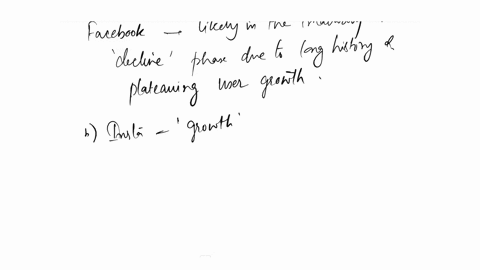 Facebook → likely in the
'decline' phase due to long history &
plateauing user growth.
b) Insta - 'growth'